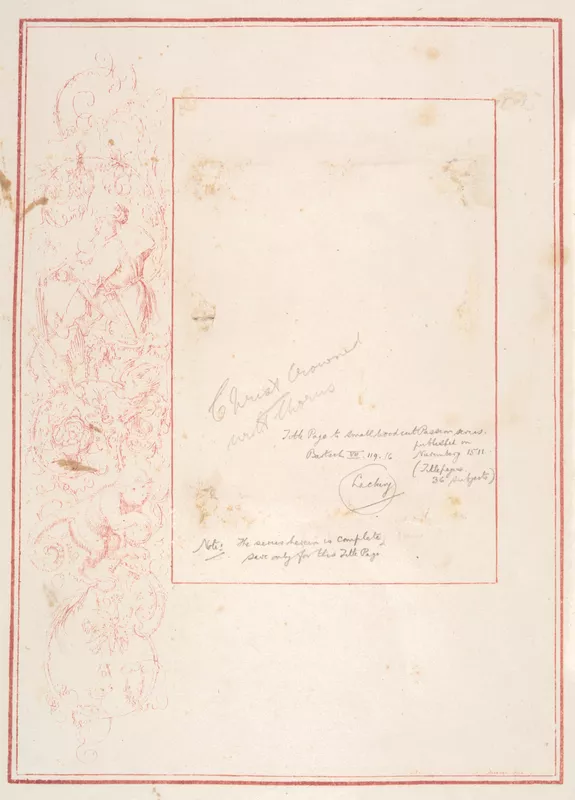 Christ Crowned
with Thorns
Title Page to small woodcut Passion series.
published in
Bartsch VII. 119. 16
Nuremberg 1511
(Titlepage
36 subjects)
Note: The series herein is complete,
save only for this Title Page